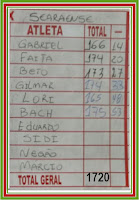 SEARAENSE
ATLETA TOTAL
GABRIEL 166 14
FAITA 174 20
BETO 173 17
GILMAR 174 23
LORI 163 18
BACH 175 23
EDUARDO
SIDI
NEGÃO
MARCIO
TOTAL GERAL 1720